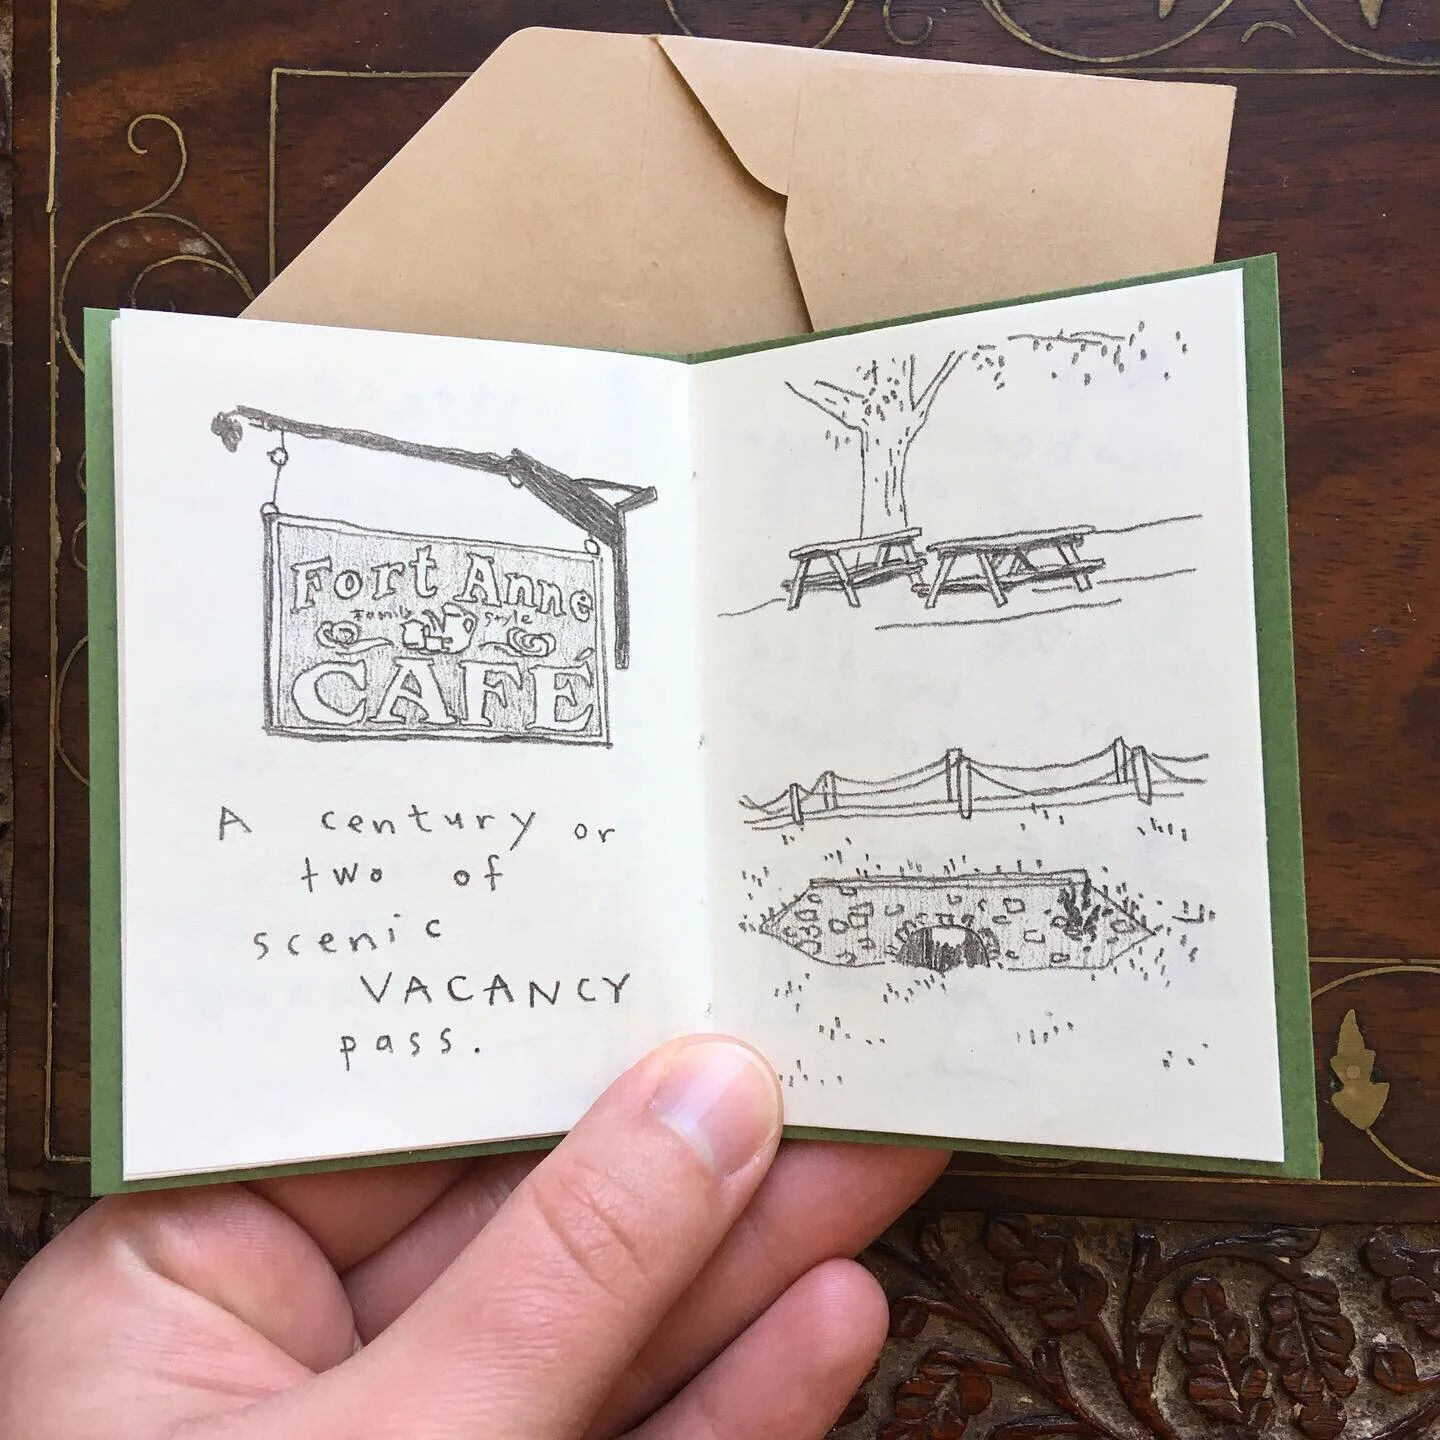 Fort Anne
Family Style
CAFÉ
A century or
two of
scenic
VACANCY
pass.